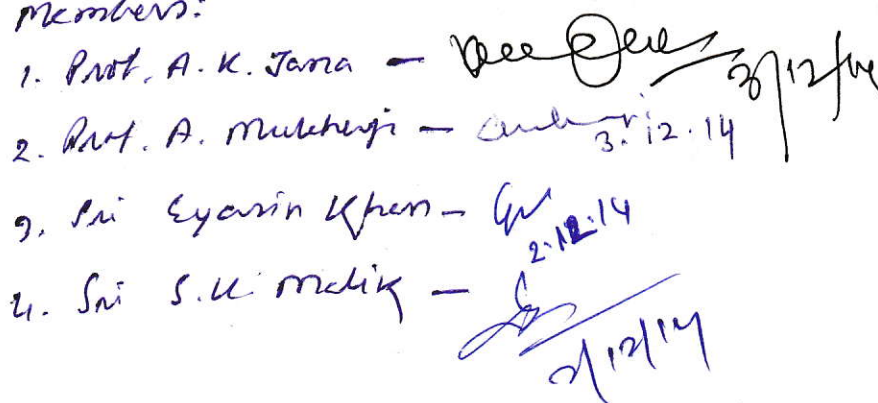 Members:
1. Prof. A. K. Jana - 3/12/14
2. Prof. A. Mukherji - 3.12.14
3. Sri Eyasin Khan - 2.12.14
4. Sri S. K. Malik - 2/12/14